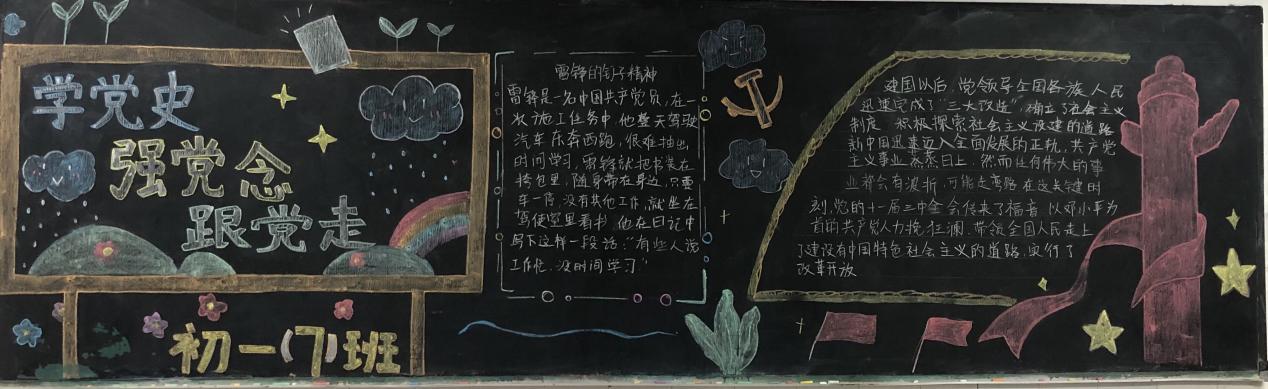 学党史
强党念
跟党走
初一(7)班
雷锋的钉子精神
雷锋是一名中国共产党员,在一
次施工任务中,他整天驾驶
汽车东奔西跑,很难抽出
时间学习,雷锋就把书装在
挎包里,随身带在身边,只要
车一停,没有其他工作,就坐在
驾使室里看书,他在日记中
写下这样一段话:“有些人说
工作忙,没时间学习”
建国以后,党领导全国各族人民
迅速完成了“三大改造”,确立了社会主义
制度,积极探索社会主义设建的道路
新中国迅速迈入全面发展的正轨,共产党
主义事业蒸蒸日上,然而任何伟大的事
业都会有波折,可能走弯路,在这关键时
刻,党的十一届三中全会传来了福音,以邓小平为
首的共产党人力挽狂澜,带领全国人民走上
了建设有中国特色社会主义的道路,实行了
改革开放